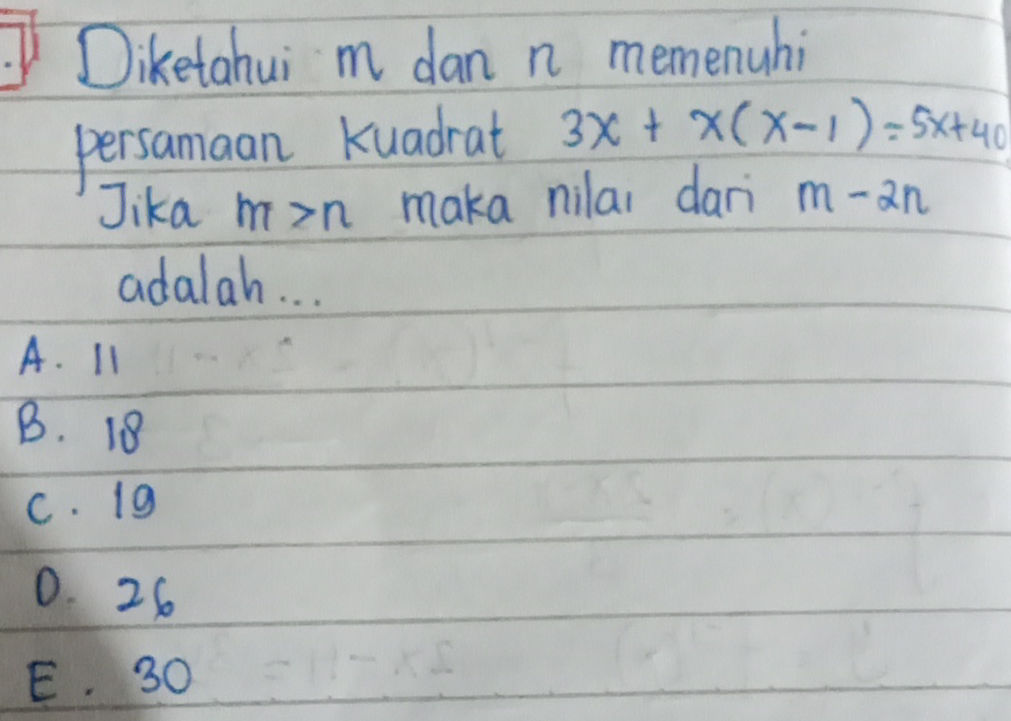 Diketahui m dan n memenuhi
persamaan kuadrat 3x + x(x-1) = 5x+40
Jika m > n maka nilai dari m - 2n
adalah...
A. 11
B. 18
C. 19
D. 26
E. 30